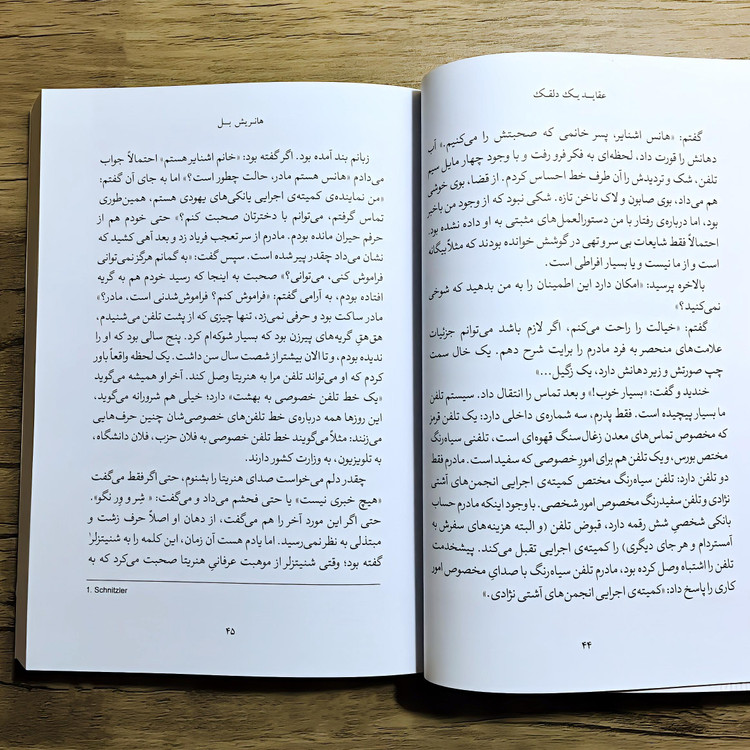 عقایـد یـک دلقـک
گفتم: «هانس اشنایر، پسر خانمی که صحبتش را می‌کنیم.» آب
دهانش را قورت داد، لحظه‌ای به فکر فرو رفت و با وجود چهار مایل سیم
تلفن، شک و تردیدش را آن طرف خط احساس کردم. از قضا، بوی خوشی
هم می‌داد، بوی صابون و لاک ناخن تازه. شکی نبود که از وجود من باخبر
بود، اما درباره‌ی رفتار با من دستورالعمل‌های مثبتی به او داده نشده بود.
احتمالاً فقط شایعات بی سر و تهی در گوشش خوانده بودند که مثلاً بیگانه
است و از ما نیست و یا بسیار افراطی است.
بالاخره پرسید: «امکان دارد این اطمینان را به من بدهید که شوخی
نمی‌کنید؟»
گفتم: «خیالت را راحت می‌کنم، اگر لازم باشد می‌توانم جزئیات
علامت‌های منحصر به فرد مادرم را برایت شرح دهم. یک خال سمت
چپ صورتش و زیر دهانش دارد، یک زگیل...»
خندید و گفت: «بسیار خوب!» و بعد تماس را انتقال داد. سیستم تلفن
ما بسیار پیچیده است. فقط پدرم، سه شماره‌ی داخلی دارد: یک تلفن قرمز
که مخصوص تماس‌های معدن زغال سنگ قهوه‌ای است، تلفنی سیاه‌رنگ
مختص بورس، و یک تلفن هم برای امور خصوصی که سفید است. مادرم فقط
دو تلفن دارد: تلفن سیاه‌رنگ مختص کمیته‌ی اجرایی انجمن‌های آشتی
نژادی و تلفن سفیدرنگ مخصوص امور شخصی. با وجود اینکه مادرم حساب
بانکی شخصی شش رقمه دارد، قبوض تلفن (و البته هزینه‌های سفرش به
آمستردام و هر جای دیگری) را کمیته‌ی اجرایی تقبل می‌کند. پیشخدمت
تلفن را اشتباه وصل کرده بود، مادرم تلفن سیاه‌رنگ با صدای مخصوص امور
کاری را پاسخ داد: «کمیته‌ی اجرایی انجمن‌های آشتی نژادی.»
۴۴
هانریش بـــل
زبانم بند آمده بود. اگر گفته بود: «خانم اشنایر هستم» احتمالاً جواب
می‌دادم «هانس هستم مادر، حالت چطور است؟» اما به جای آن گفتم:
«من نماینده‌ی کمیته‌ی اجرایی یانکی‌های یهودی هستم، همین‌طوری
تماس گرفتم، می‌توانم با دخترتان صحبت کنم؟» حتی خودم هم از
حرفم حیران مانده بودم. مادرم از سر تعجب فریاد زد و بعد آهی کشید که
نشان می‌داد چقدر پیر شده است. سپس گفت: «به گمانم هرگز نمی‌توانی
فراموش کنی، می‌توانی؟» صحبت به اینجا که رسید خودم هم به گریه
افتاده بودم، به آرامی گفتم: «فراموش کنم؟ فراموش‌شدنی است، مادر؟»
مادر ساکت بود و حرفی نمی‌زد، تنها چیزی که از پشت تلفن می‌شنیدم،
هق‌هق گریه‌های پیرزن بود که بسیار شوکه‌ام کرد. پنج سالی بود که او را
ندیده بودم، و تا الان بیشتر از شصت سال سن داشت. یک لحظه واقعاً باور
کردم که او می‌تواند تلفن مرا به هنریتا وصل کند. آخر او همیشه می‌گوید
«یک خط تلفن خصوصی به بهشت» دارد؛ خیلی هم شرورانه می‌گوید،
این روزها همه درباره‌ی خط تلفن‌های خصوصی‌شان چنین حرف‌هایی
می‌زنند: مثلاً می‌گویند خط تلفن خصوصی به فلان حزب، فلان دانشگاه،
به تلویزیون، به وزارت کشور دارند.
چقدر دلم می‌خواست صدای هنریتا را بشنوم، حتی اگر فقط می‌گفت
«هیچ خبری نیست» یا حتی فحشم می‌داد و می‌گفت: « شِر و وِر نگو».
حتی اگر این مورد آخر را هم می‌گفت، از دهان او اصلاً حرف زشت و
مبتذلی به نظر نمی‌رسید. اما یادم هست آن زمان، این کلمه را به شنیتزلر¹
گفته بود؛ وقتی شنیتزلر از موهبت عرفانی هنریتا صحبت می‌کرد که به
1. Schnitzler
۴۵